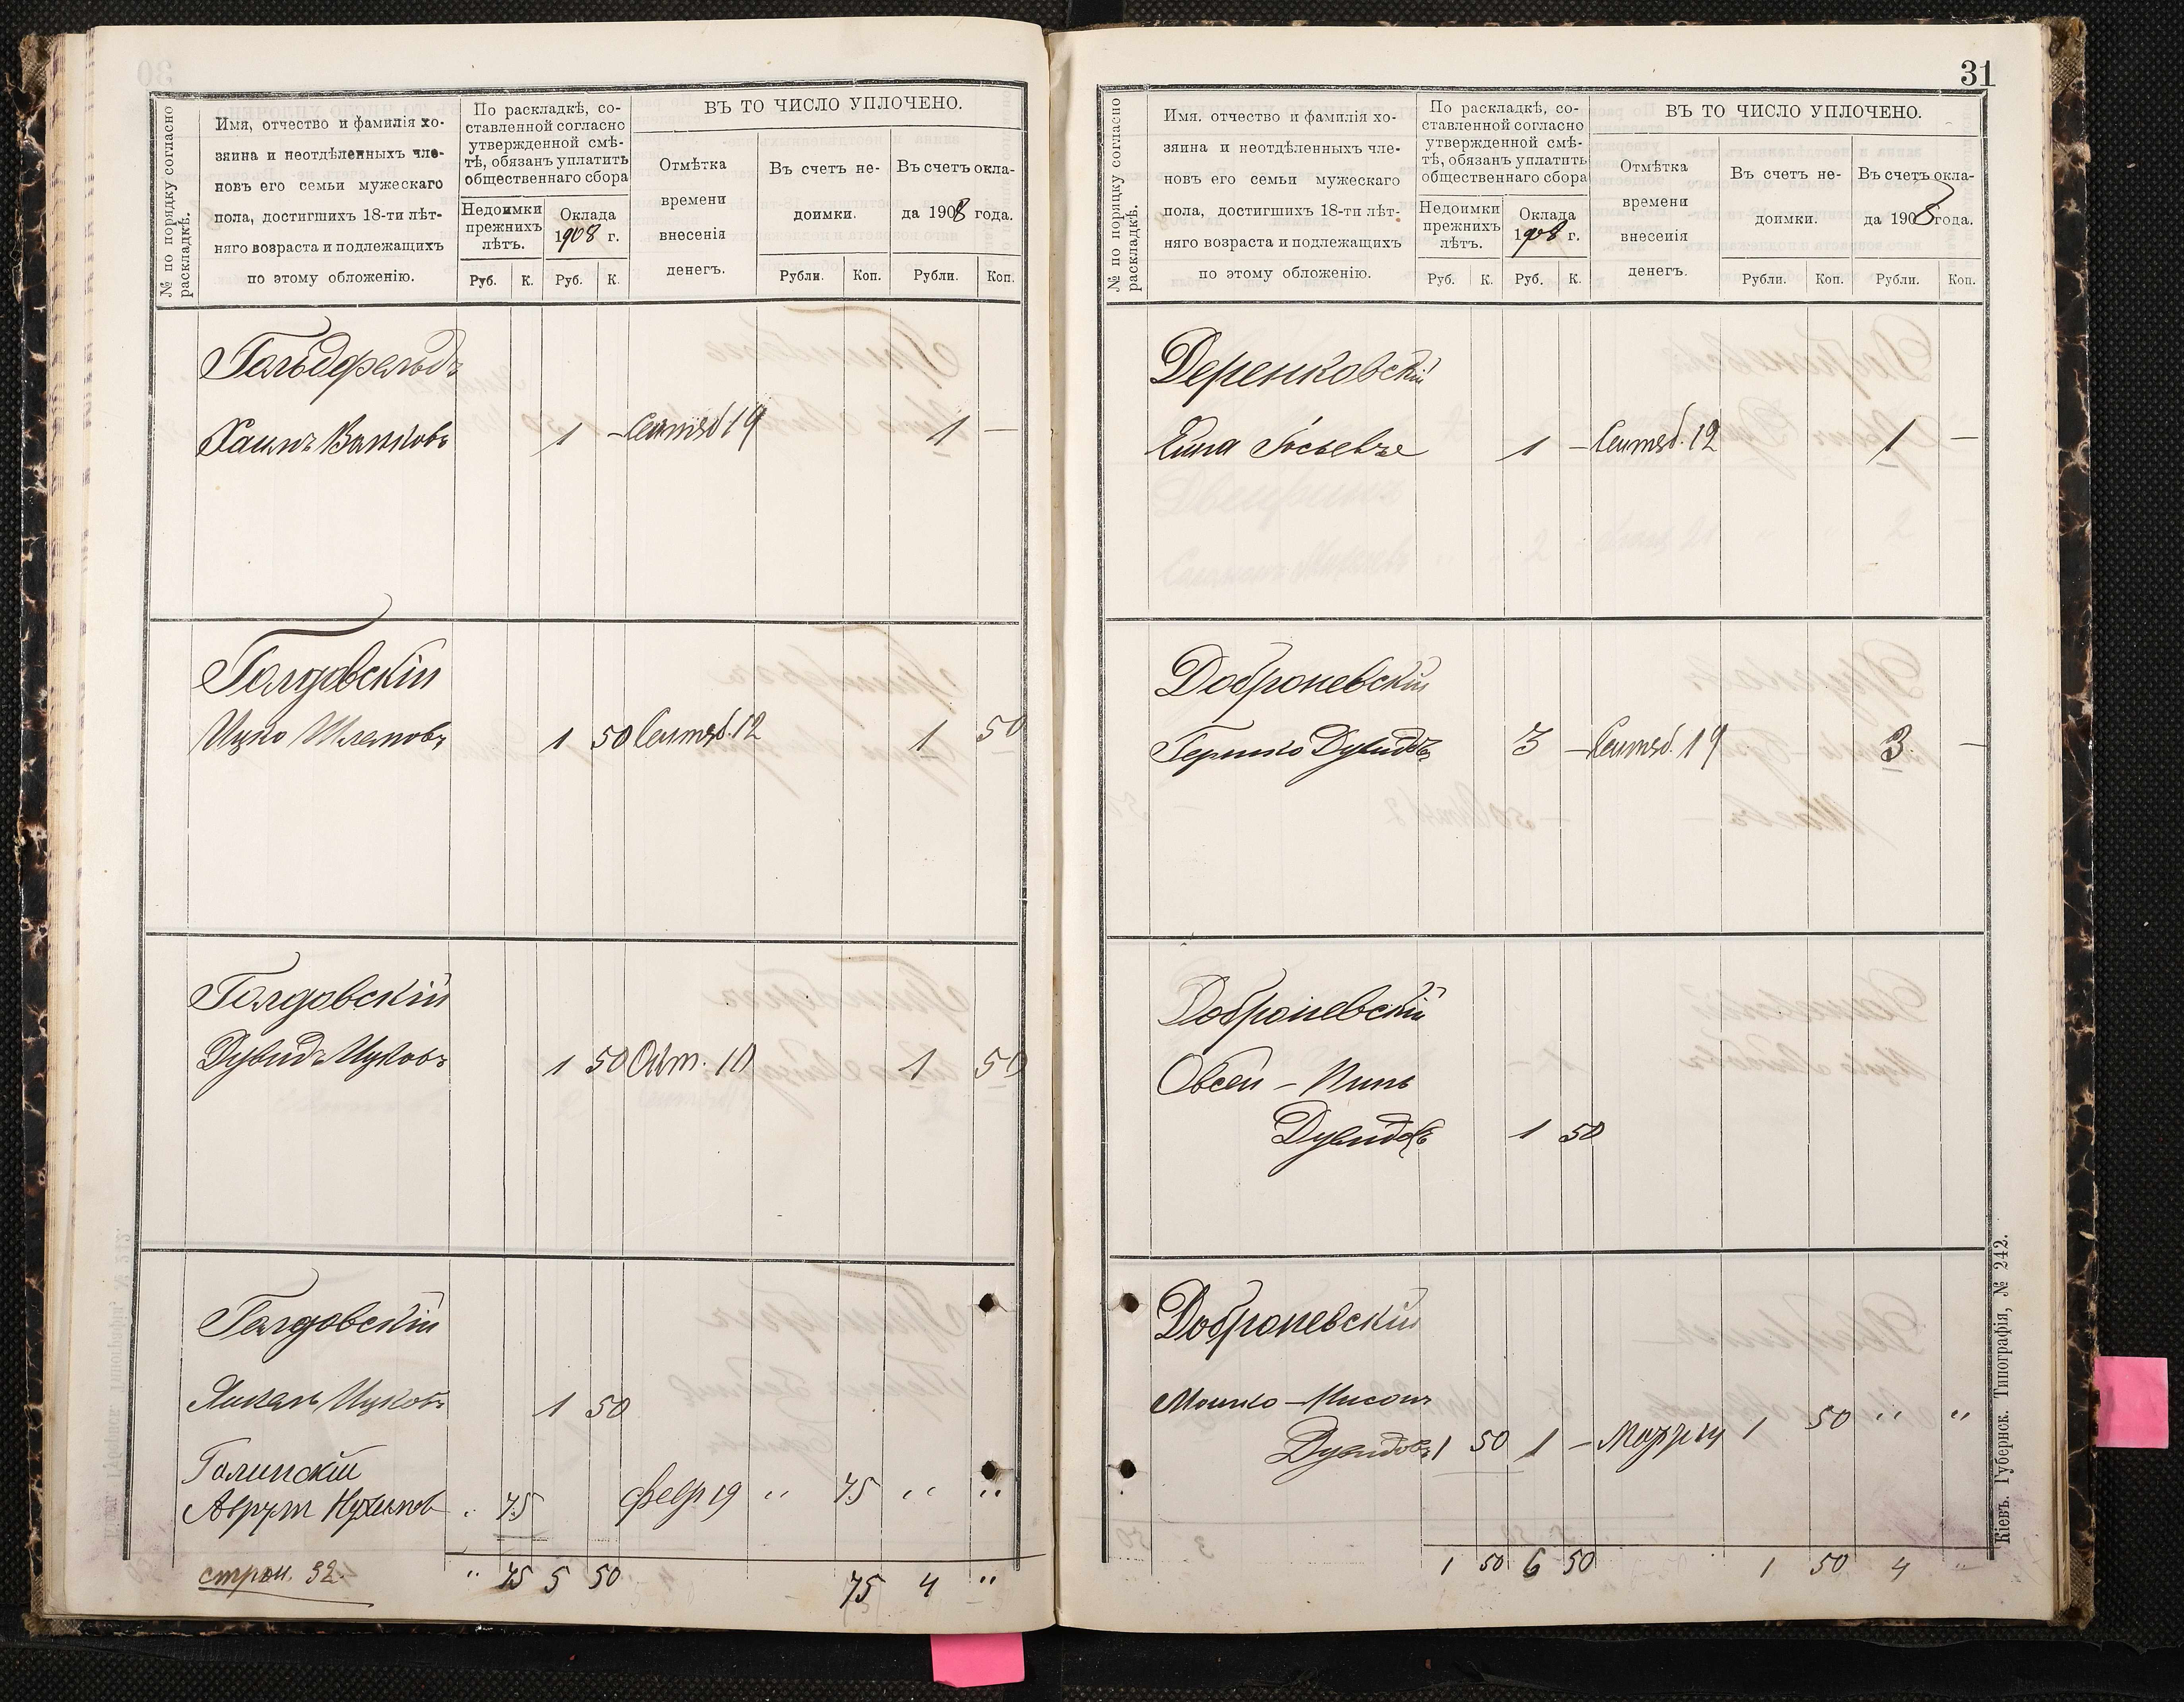 № по порядку согласно раскладкѣ.
Имя, отчество и фамилія хо-
зяина и неотдѣленныхъ чле-
новъ его семьи мужескаго
пола, достигшихъ 18-ти лѣт-
няго возраста и подлежащихъ
по этому обложенію.
По раскладкѣ, со-
ставленной согласно
утвержденной смѣ-
тѣ, обязанъ уплатить
общественнаго сбора
Недоимки
прежнихъ
лѣтъ.
Оклада
1908 г.
Руб. К. Руб. К.
ВЪ ТО ЧИСЛО УПЛОЧЕНО.
Отмѣтка
времени
внесенія
денегъ.
Въ счетъ не-
доимки.
Въ счетъ окла-
да 1908 года.
Рубли. Коп. Рубли. Коп.
Гольдфельдъ
Хаимъ 1 – Сентяб 19 1 –
Голдовскій
Ицко Шлемовъ 1 50 Сентяб. 12 1 50
Голдовскій
Дувидъ Ицковъ 1 50 Окт. 10 1 50
Голдовскій
Янкель Ицковъ 1 50
Голинскій
Аврум Нухимов " 75 февр 19 " 75 " "
стран. 32. " 75 5 50 75 4 "
31
№ по порядку согласно раскладкѣ.
Имя, отчество и фамилія хо-
зяина и неотдѣленныхъ чле-
новъ его семьи мужескаго
пола, достигшихъ 18-ти лѣт-
няго возраста и подлежащихъ
по этому обложенію.
По раскладкѣ, со-
ставленной согласно
утвержденной смѣ-
тѣ, обязанъ уплатить
общественнаго сбора
Недоимки
прежнихъ
лѣтъ.
Оклада
1908 г.
Руб. К. Руб. К.
ВЪ ТО ЧИСЛО УПЛОЧЕНО.
Отмѣтка
времени
внесенія
денегъ.
Въ счетъ не-
доимки.
Въ счетъ окла-
да 1908 года.
Рубли. Коп. Рубли. Коп.
Деренковскій
1 – Сентяб. 12 1 –
Доброневскій
Гершко Дувидовъ 3 – Сентяб. 19 3 –
Доброневскій
Овсей – Пинь
Дувидовъ 1 50
Доброневскій
Мошко – Нисонъ
Дувидовъ 1 50 1 – 1 50 " "
1 50 6 50 1 50 4 "
Кіевъ. Губернск. Типографія, № 242.